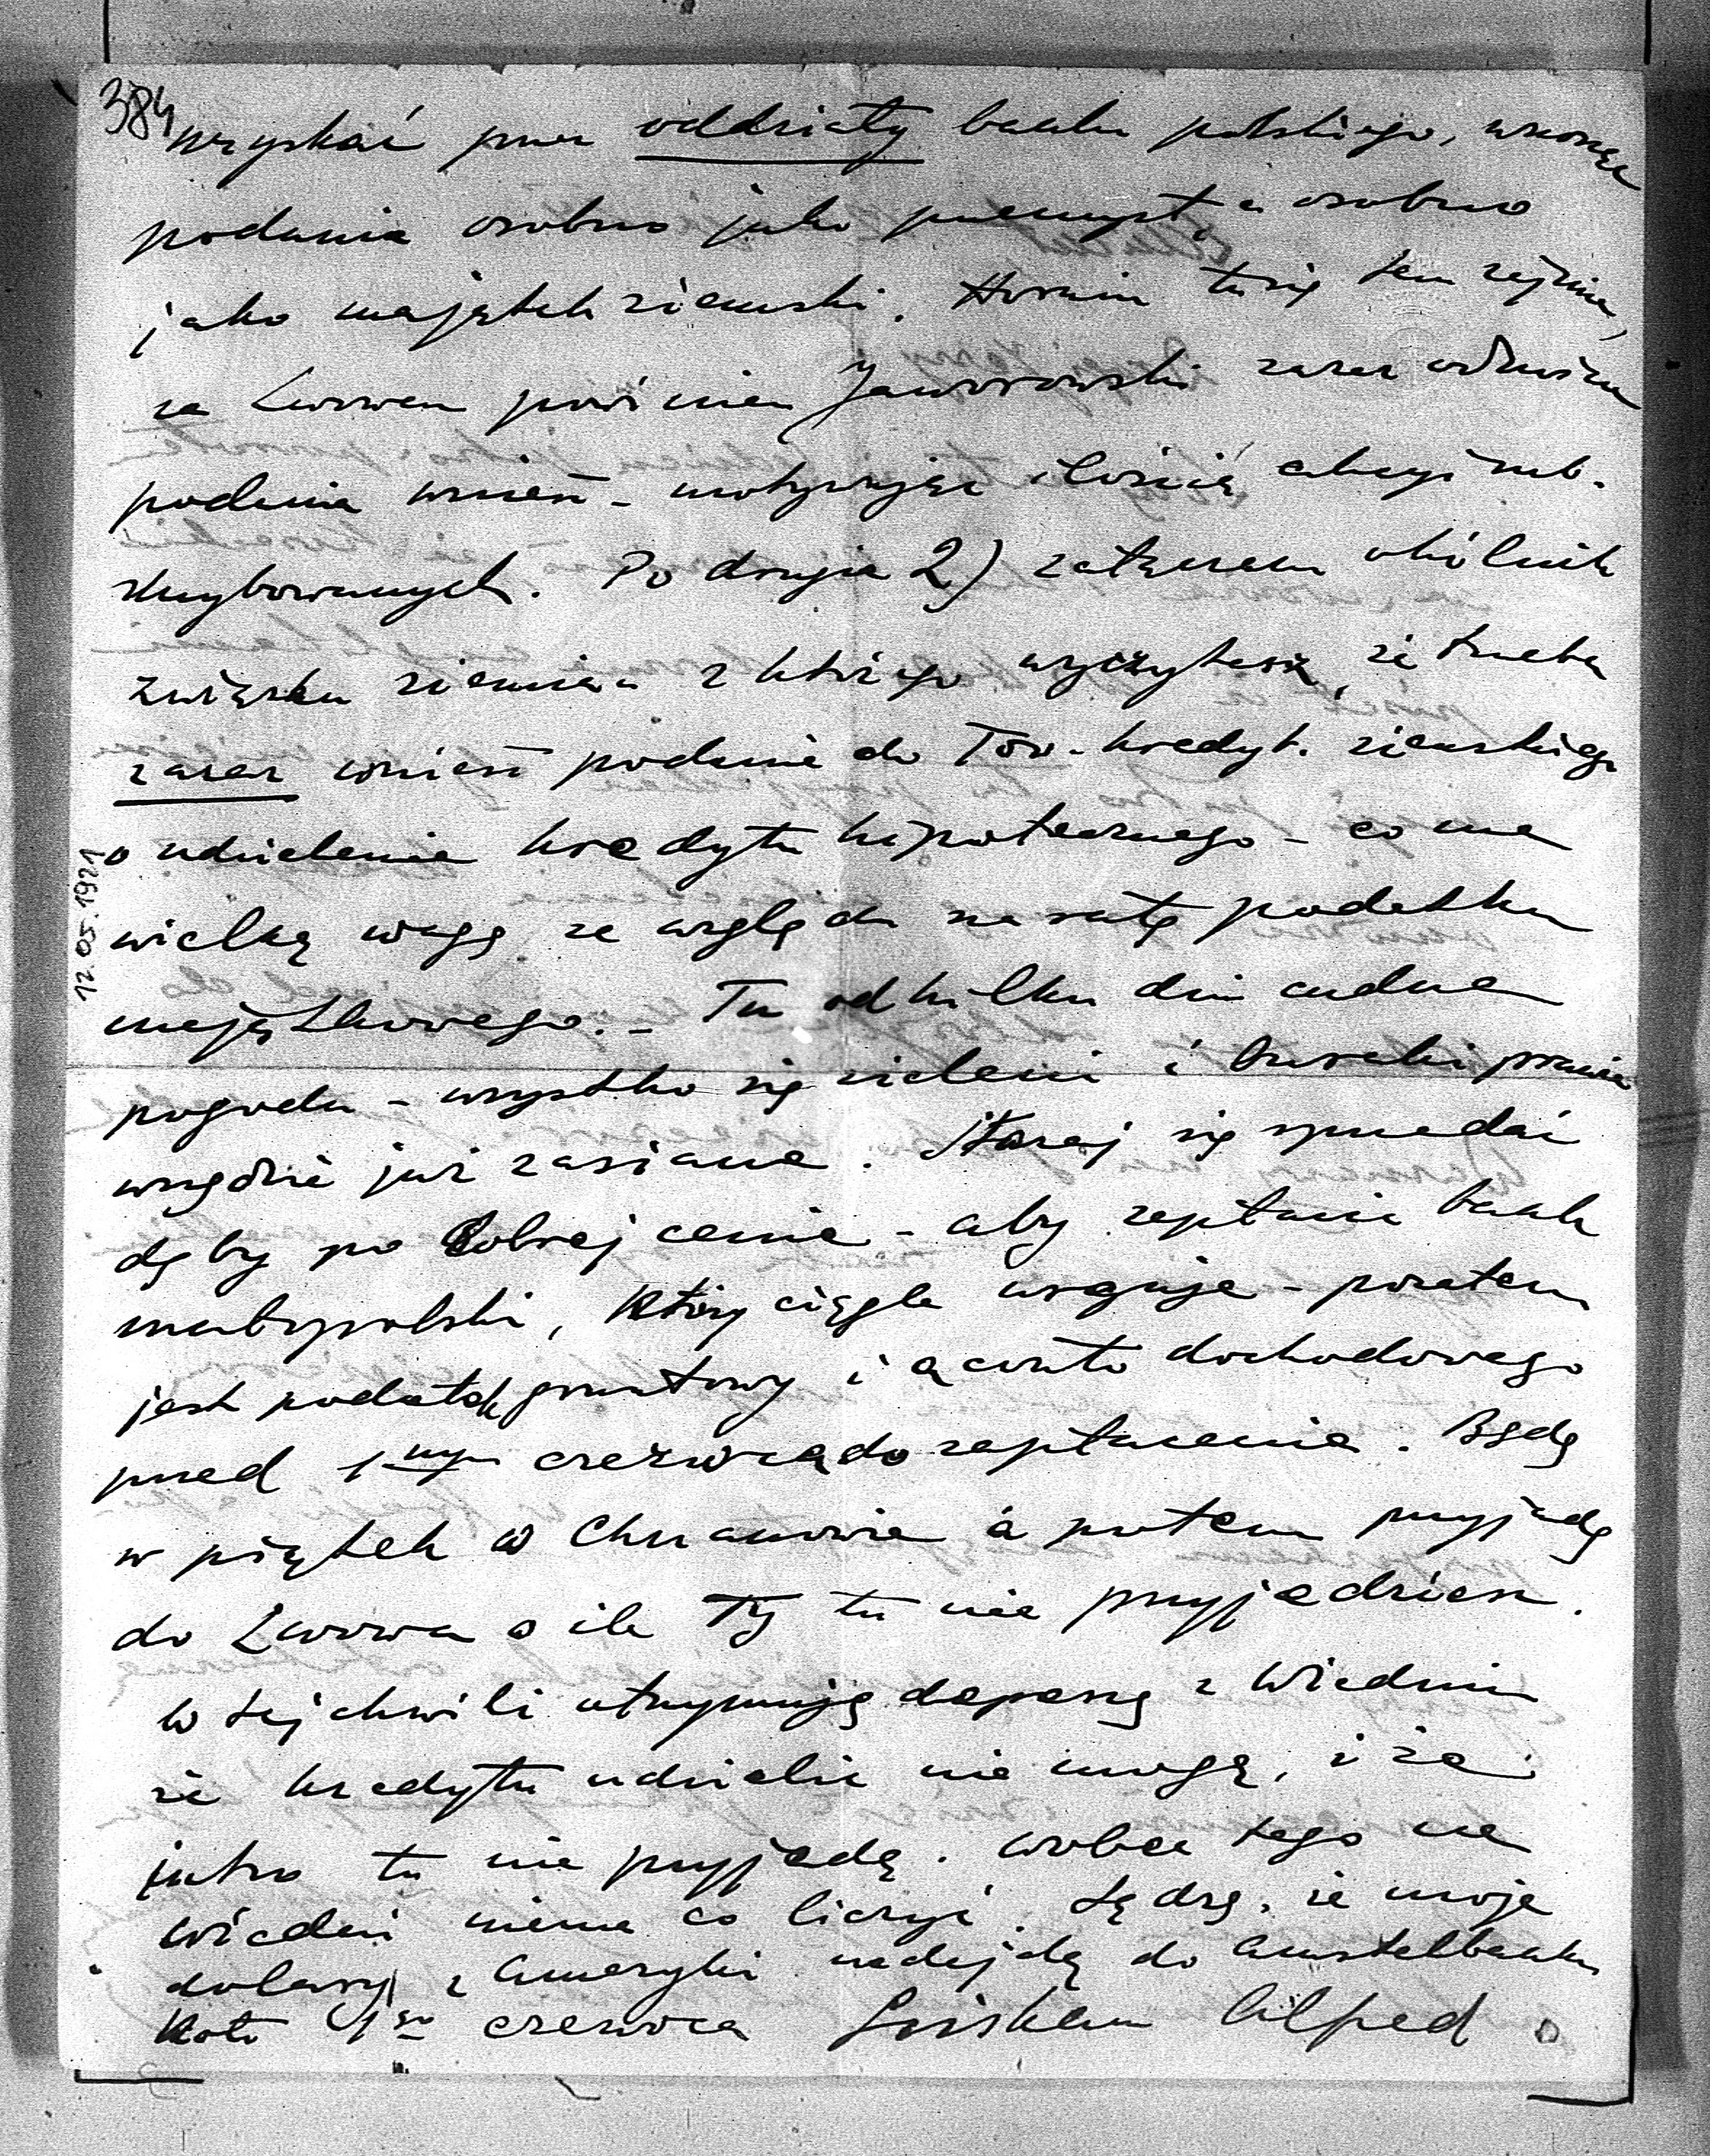 384
uzyskać przez oddziały banku polskiego, wnosząc
podania osobno jako przemysł, a osobno
jako majątek ziemski. Horain tu się tem zajmie,
za Lwowem powinien Jaworowski zaraz odnośne
podania wnieść - motywując ilością akcyi sub-
skrybowanych. Po drugie 2) załączam okólnik
związku ziemian z którego wyczytasz, że trzeba
zaraz wnieść podanie do Tow. kredyt. ziemskiego
o udzielenie kredytu hipotecznego - co ma
wielką wagę ze względu na ratę podatku
majątkowego. - Tu od kilku dni cudna
pogoda - wszystko się zieleni i buraki prawie
wszędzie już zasiane. Staraj się sprzedać
dęby po dobrej cenie - aby zapłacić bank
małopolski, który ciągle urguje - pozatem
jest podatek gruntowy i a conto dochodowego
przed 1nym czerwca do zapłacenia. Będę
w piątek w Chrzanowie a potem przyjadę
do Lwowa o ile Ty tu nie przyjedziesz.
W tej chwili otrzymuję depeszę z Wiednia
że kredytu udzielić nie mogą, i że
jutro tu nie przyjadą. Wobec tego na
Wiedeń niema co liczyć. Sądzę, że moje
dolary z Ameryki nadejdą do Amstelbanku
koło 1go czerwca Ściskam Alfred
12.05.1921